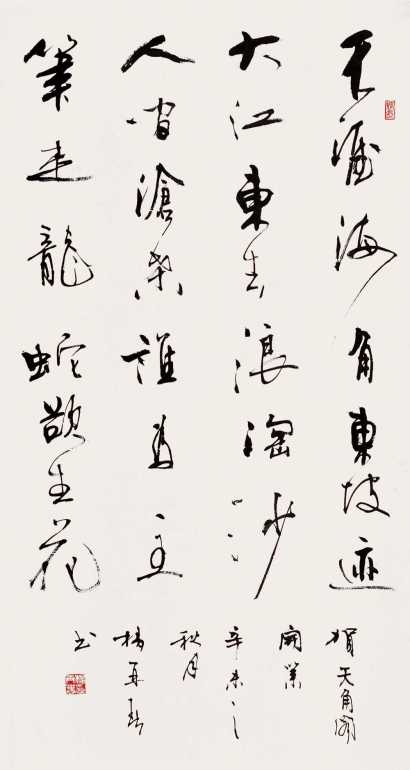 天涯海角東坡迹
大江東去浪淘沙
人間滄桑誰為主
筆走龍蛇欲生花
賀天角
開業
辛未之
秋月
楊再春
书